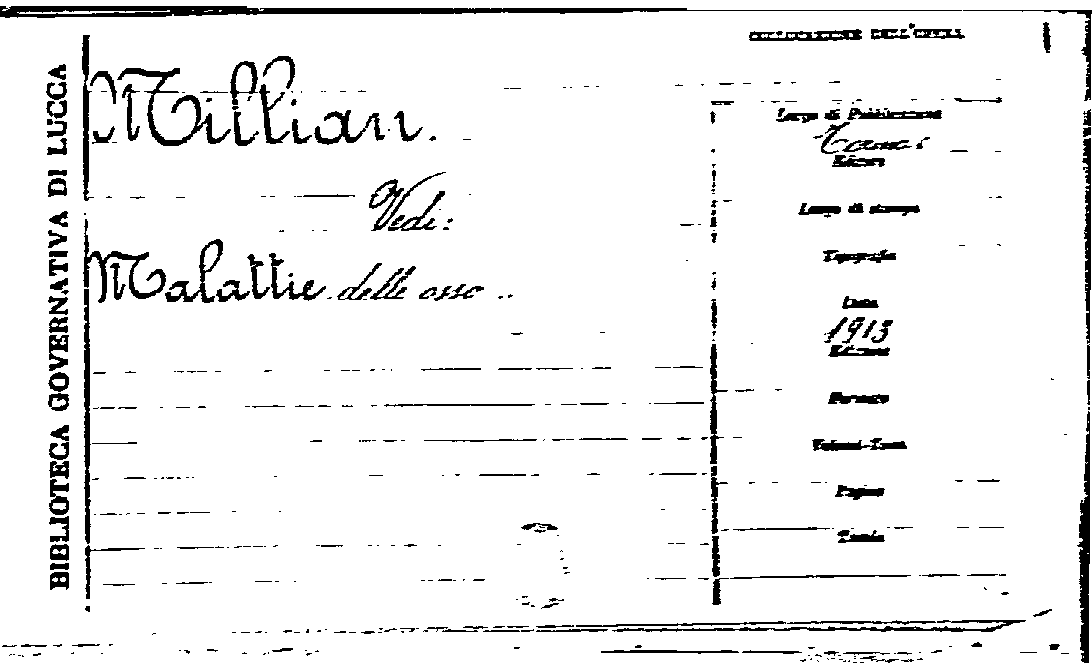 BIBLIOTECA GOVERNATIVA DI LUCCA
Millian.
Vedi:
Malattie delle ossa ..
COLLOCAZIONE DELL'OPERA
Luogo di Pubblicazione
Editore
Luogo di stampa
Tipografia
Data
1913
Edizione
Formato
Volumi-Tomi
Pagine
Tavole